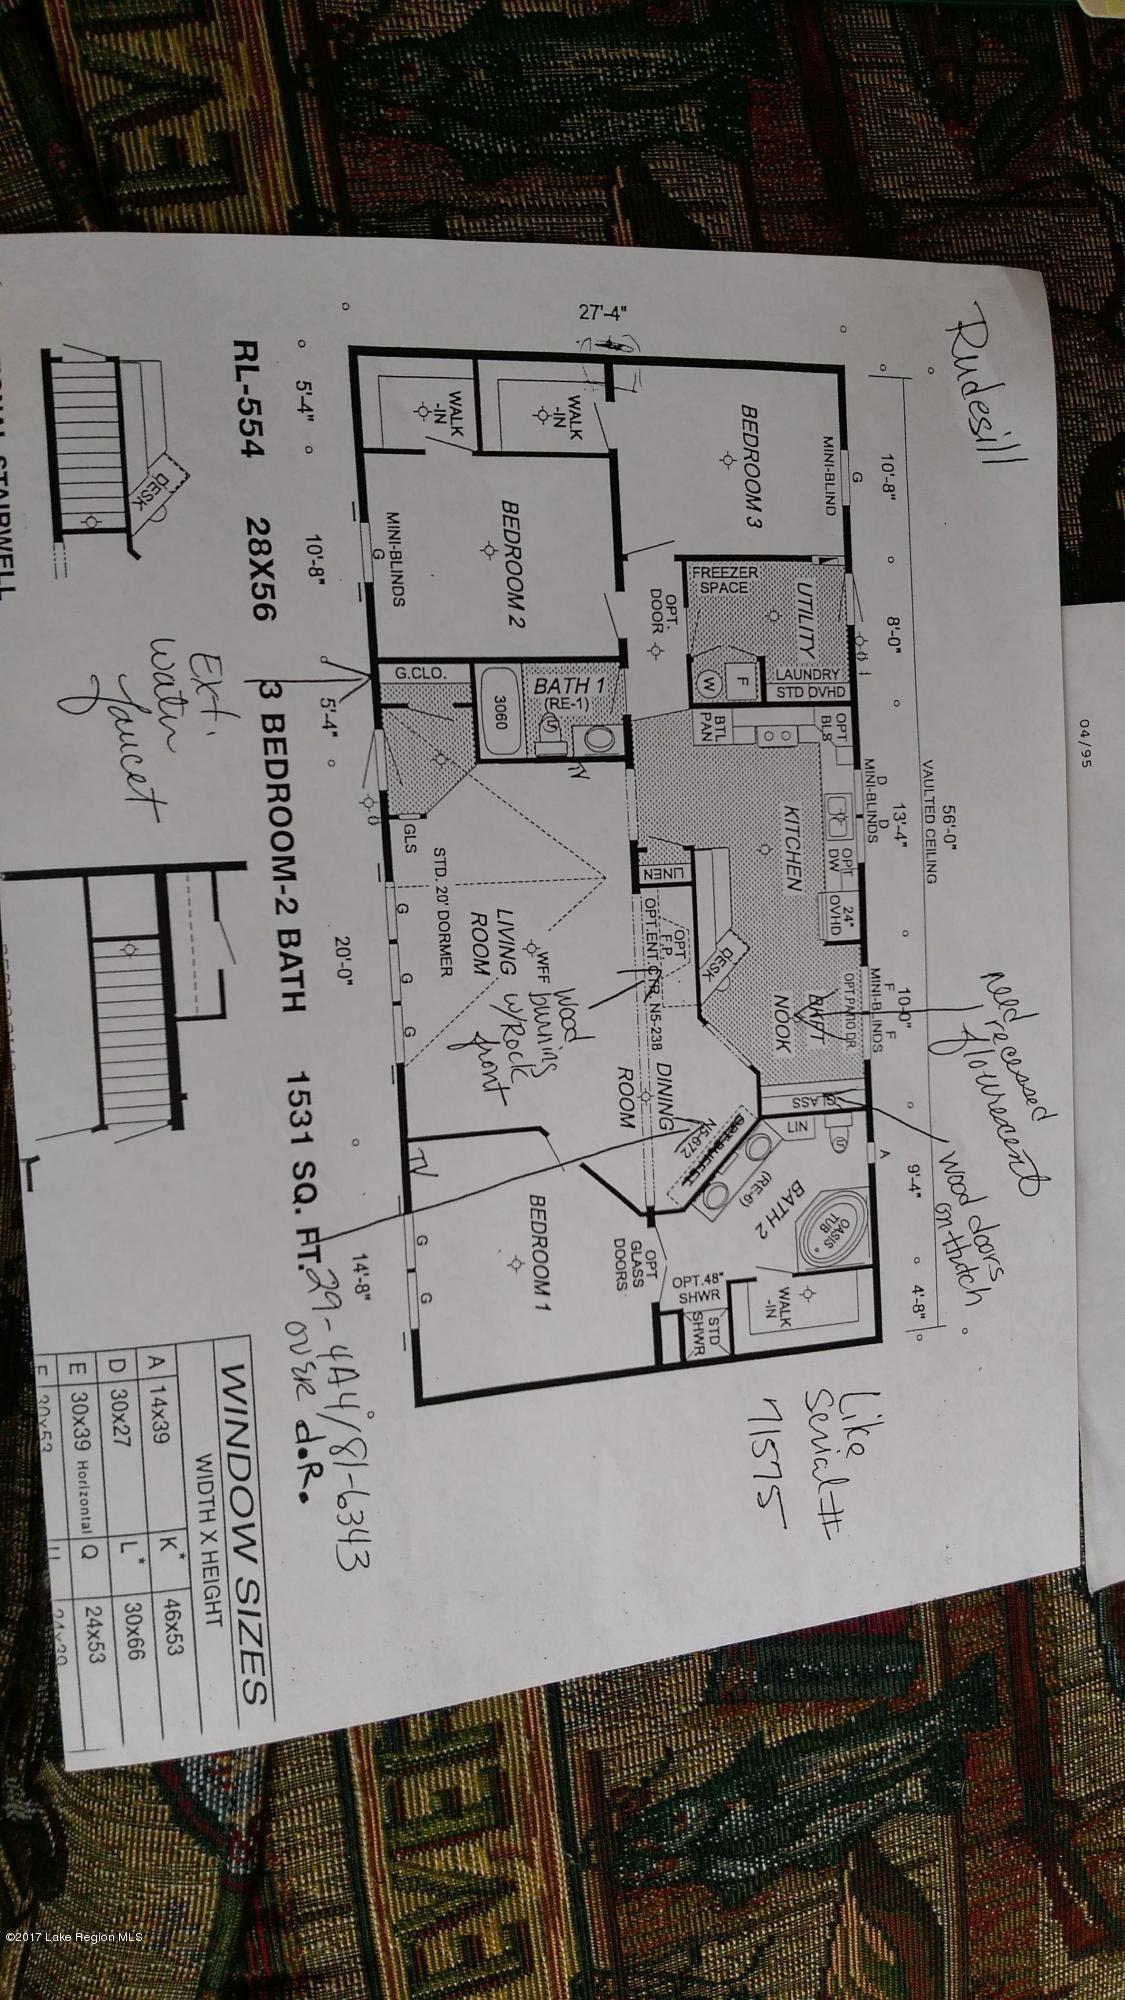 Rudesill
04/95
56'-0"
VAULTED CEILING
10'-8"
8'-0"
13'-4"
10'-0"
9'-4"
4'-8"
need
recessed
flourescent
wood doors
on hutch
Like
Serial #
71575
27'-4"
MINI-BLIND
G
BEDROOM 3
UTILITY
FREEZER
SPACE
LAUNDRY
STD OVHD
W
F
OPT.
DOOR
OPT
BLS
BTL
PAN
D D
MINI-BLINDS
OPT
DW
24"
OVHD
KITCHEN
DESK
F F
MINI-BLINDS
OPT.PATIO DR.
NOOK
GLASS
LIN
A
BATH 2
(RE-6)
OASIS
TUB
WALK
-IN
OPT.48"
SHWR
STD
SHWR
OPT
GLASS
DOORS
WALK
-IN
WALK
-IN
BEDROOM 2
MINI-BLINDS
G
G.CLO.
3060
BATH 1
(RE-1)
TV
LINEN
OPT
F.P.
OPT.ENT.CTR. N5-238
DINING
ROOM
OPT.BUFFET
N5-672
GLS
STD. 20' DORMER
LIVING
ROOM
WFF
wood
burning
w/Rock
front
G G G
TV
BEDROOM 1
G G
5'-4"
10'-8"
5'-4"
20'-0"
14'-8"
RL-554 28X56 3 BEDROOM-2 BATH 1531 SQ. FT.
OVER d.R.
Ext.
water
faucet
DESK
WINDOW SIZES
WIDTH X HEIGHT
A 14x39 K* 46x53
D 30x27 L* 30x66
E 30x39 Horizontal Q 24x53
STAIRWELL
©2017 Lake Region MLS